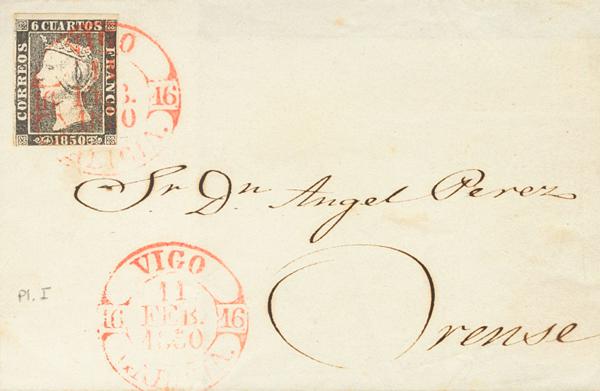 6 CUARTOS
CORREOS
FRANCO
1850
VIGO
16
Sr. Dn. Angel Perez
Orense
VIGO
11
FEB.
1850
16
16
GALICIA.
Pl. I